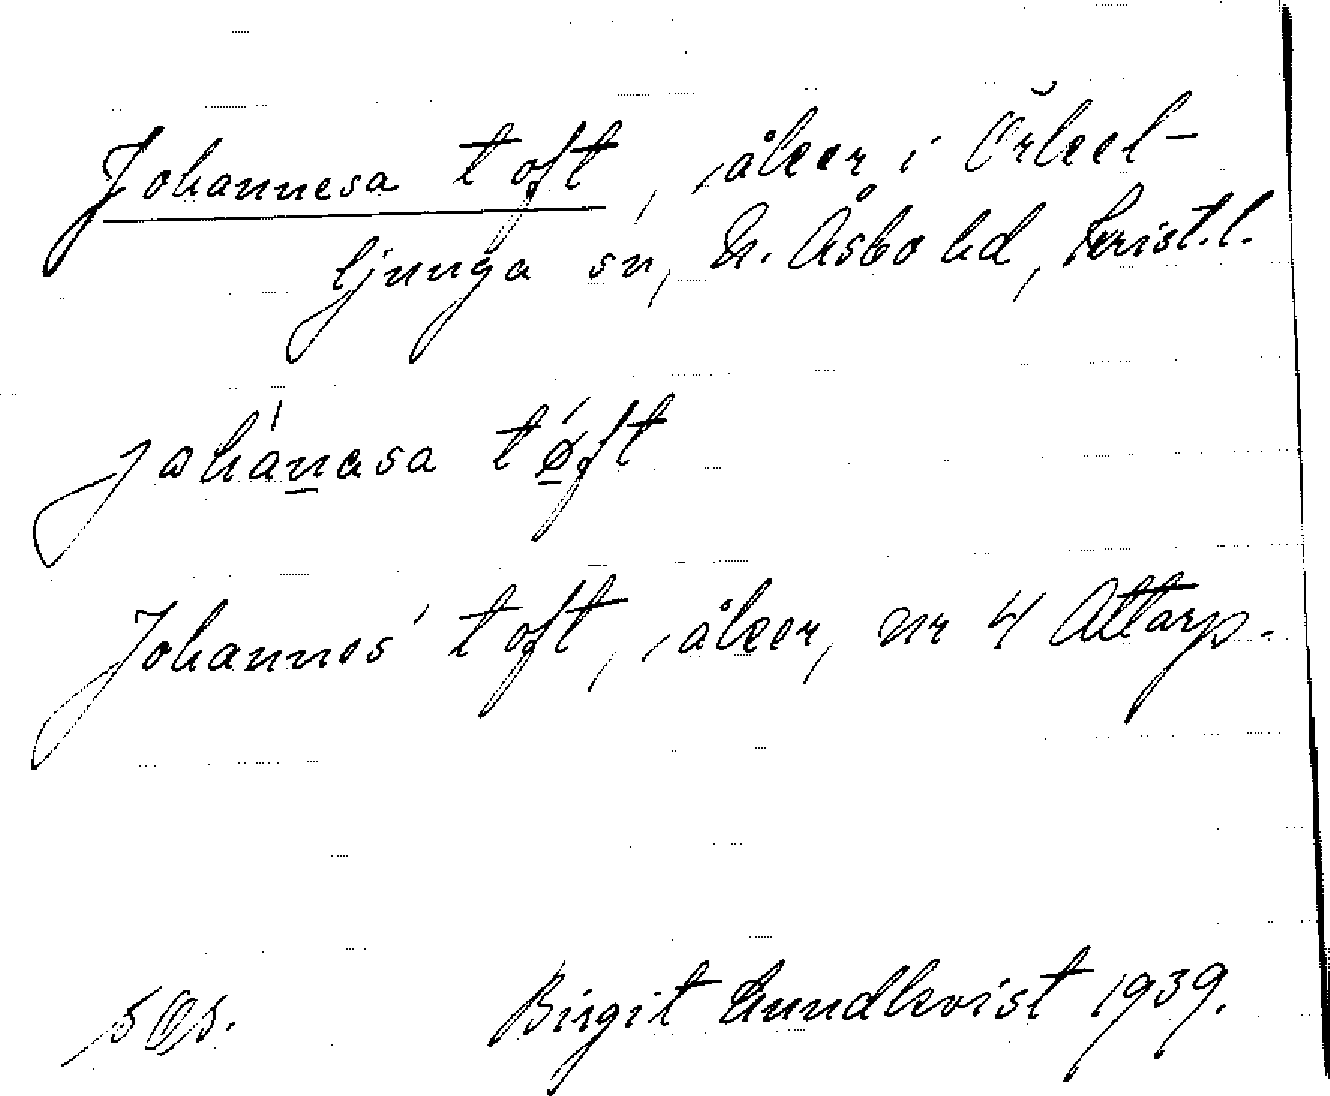 Johannesa toft, åker i Örkel-
ljunga sn, N. Åsbo hd, Krist.l.
jahánasa tǿft
Johannes' toft, åker, nr 4 Attarp.
Birgit Lundkvist 1939.